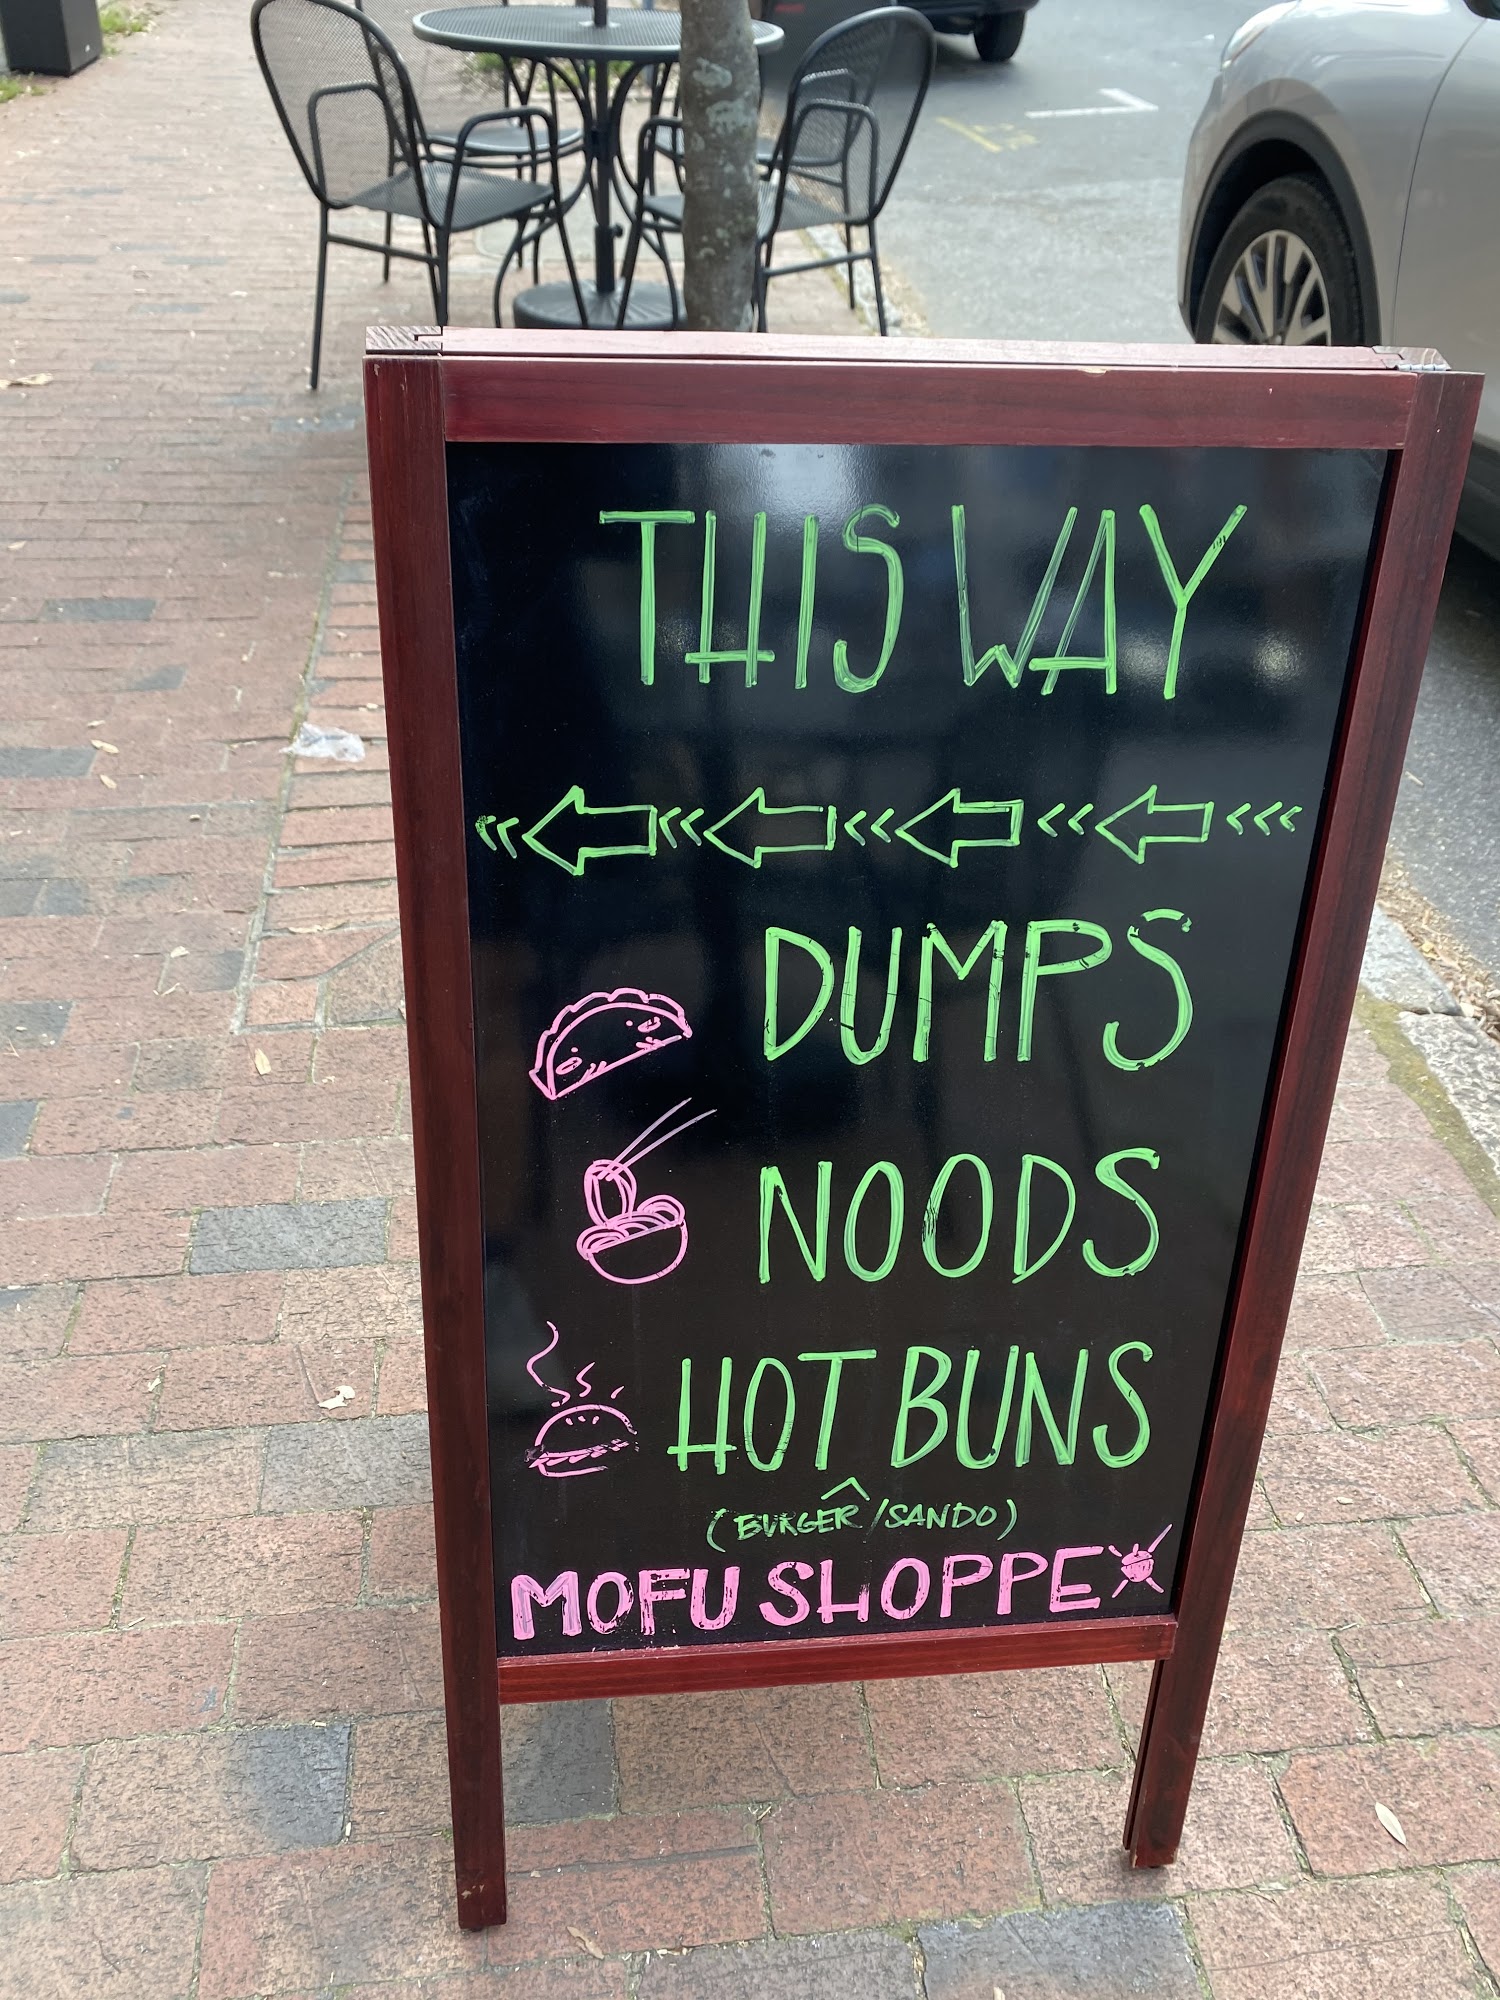 THIS WAY
DUMPS
NOODS
HOT BUNS
(BURGER/SANDO)
MOFU SHOPPE